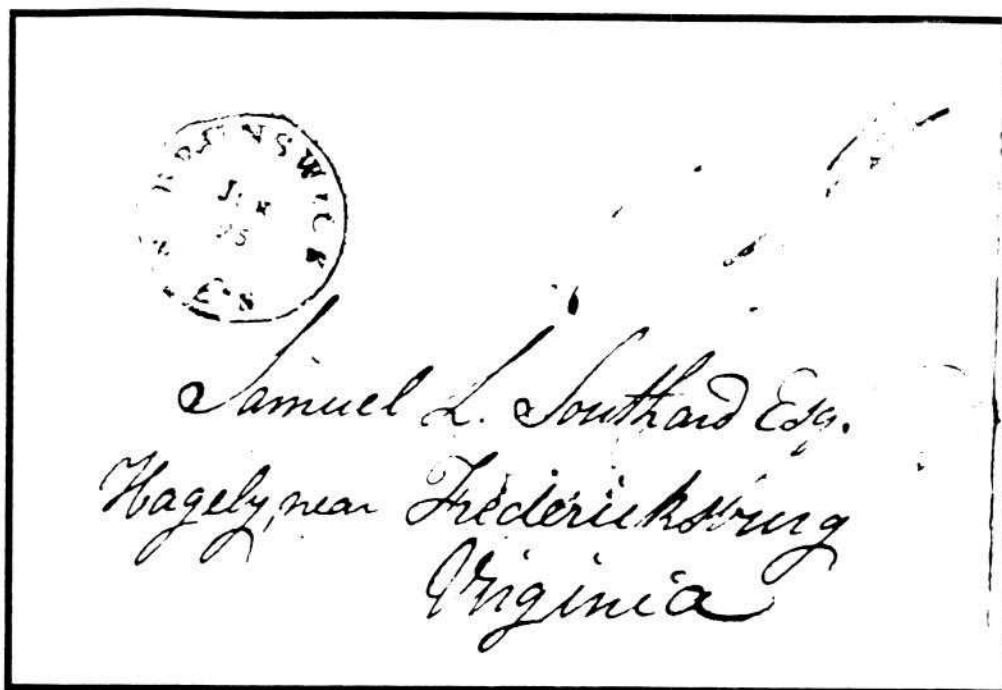 BRUNSWICK
Samuel L. Southard Esq.
Hagely, near Fredericksburg
Virginia